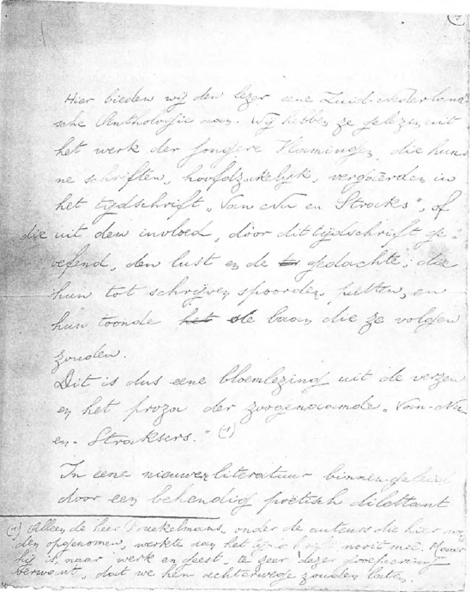 Hier bieden wij den lezer eene Zuid-nederland-
sche Anthologie aan. Wij hebben ze gelezen uit
het werk der jongere Vlamingen, die hun-
ne schriften, hoofdzakelijk, vergaerden in
het tijdschrift "Van Nu en Straks", of
die uit den invloed, door dit tijdschrift ge-
oefend, den lust en de gedachte, die
hun tot schrijven spoorden, putten, en
hun toonde het de baan die ze volgen
zouden.
Dit is dus eene bloemlezing uit de verzen
en het proza der zoogenaamde "Van-Nu-
en-Straksers." (1)
In eene nieuwere literatuur binnen-geleid
door een behendig poëtisch dilettant
(1) Alleen de heer onder de auteurs die hier
den opgenomen, werkte aan het nooit mee. Maar
hij is, naar werk en geest, te zeer dezer
verwant, dat we hem achterwege zouden laten.